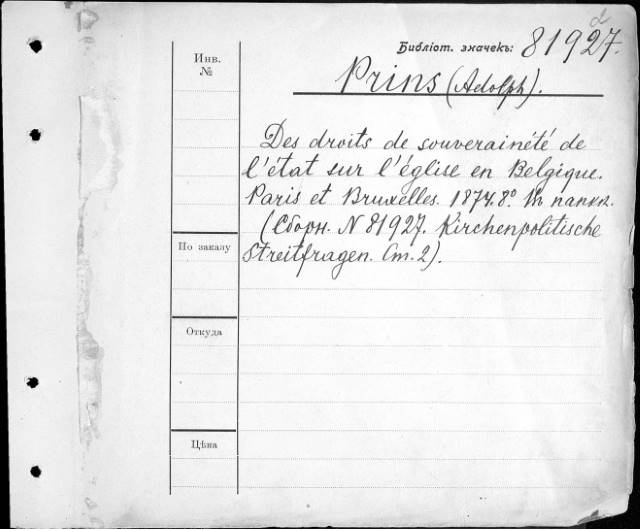 Библіот. значекъ: 81927.
Инв.
№
Prins (Adolph).
Des droits de souverainété de
l'état sur l'église en Belgique.
Paris et Bruxelles. 1874. 8º.
(Сборн. N 81927. Kirchenpolitische
Streitfragen. Ст. 2).
По заказу
Откуда
Цѣна